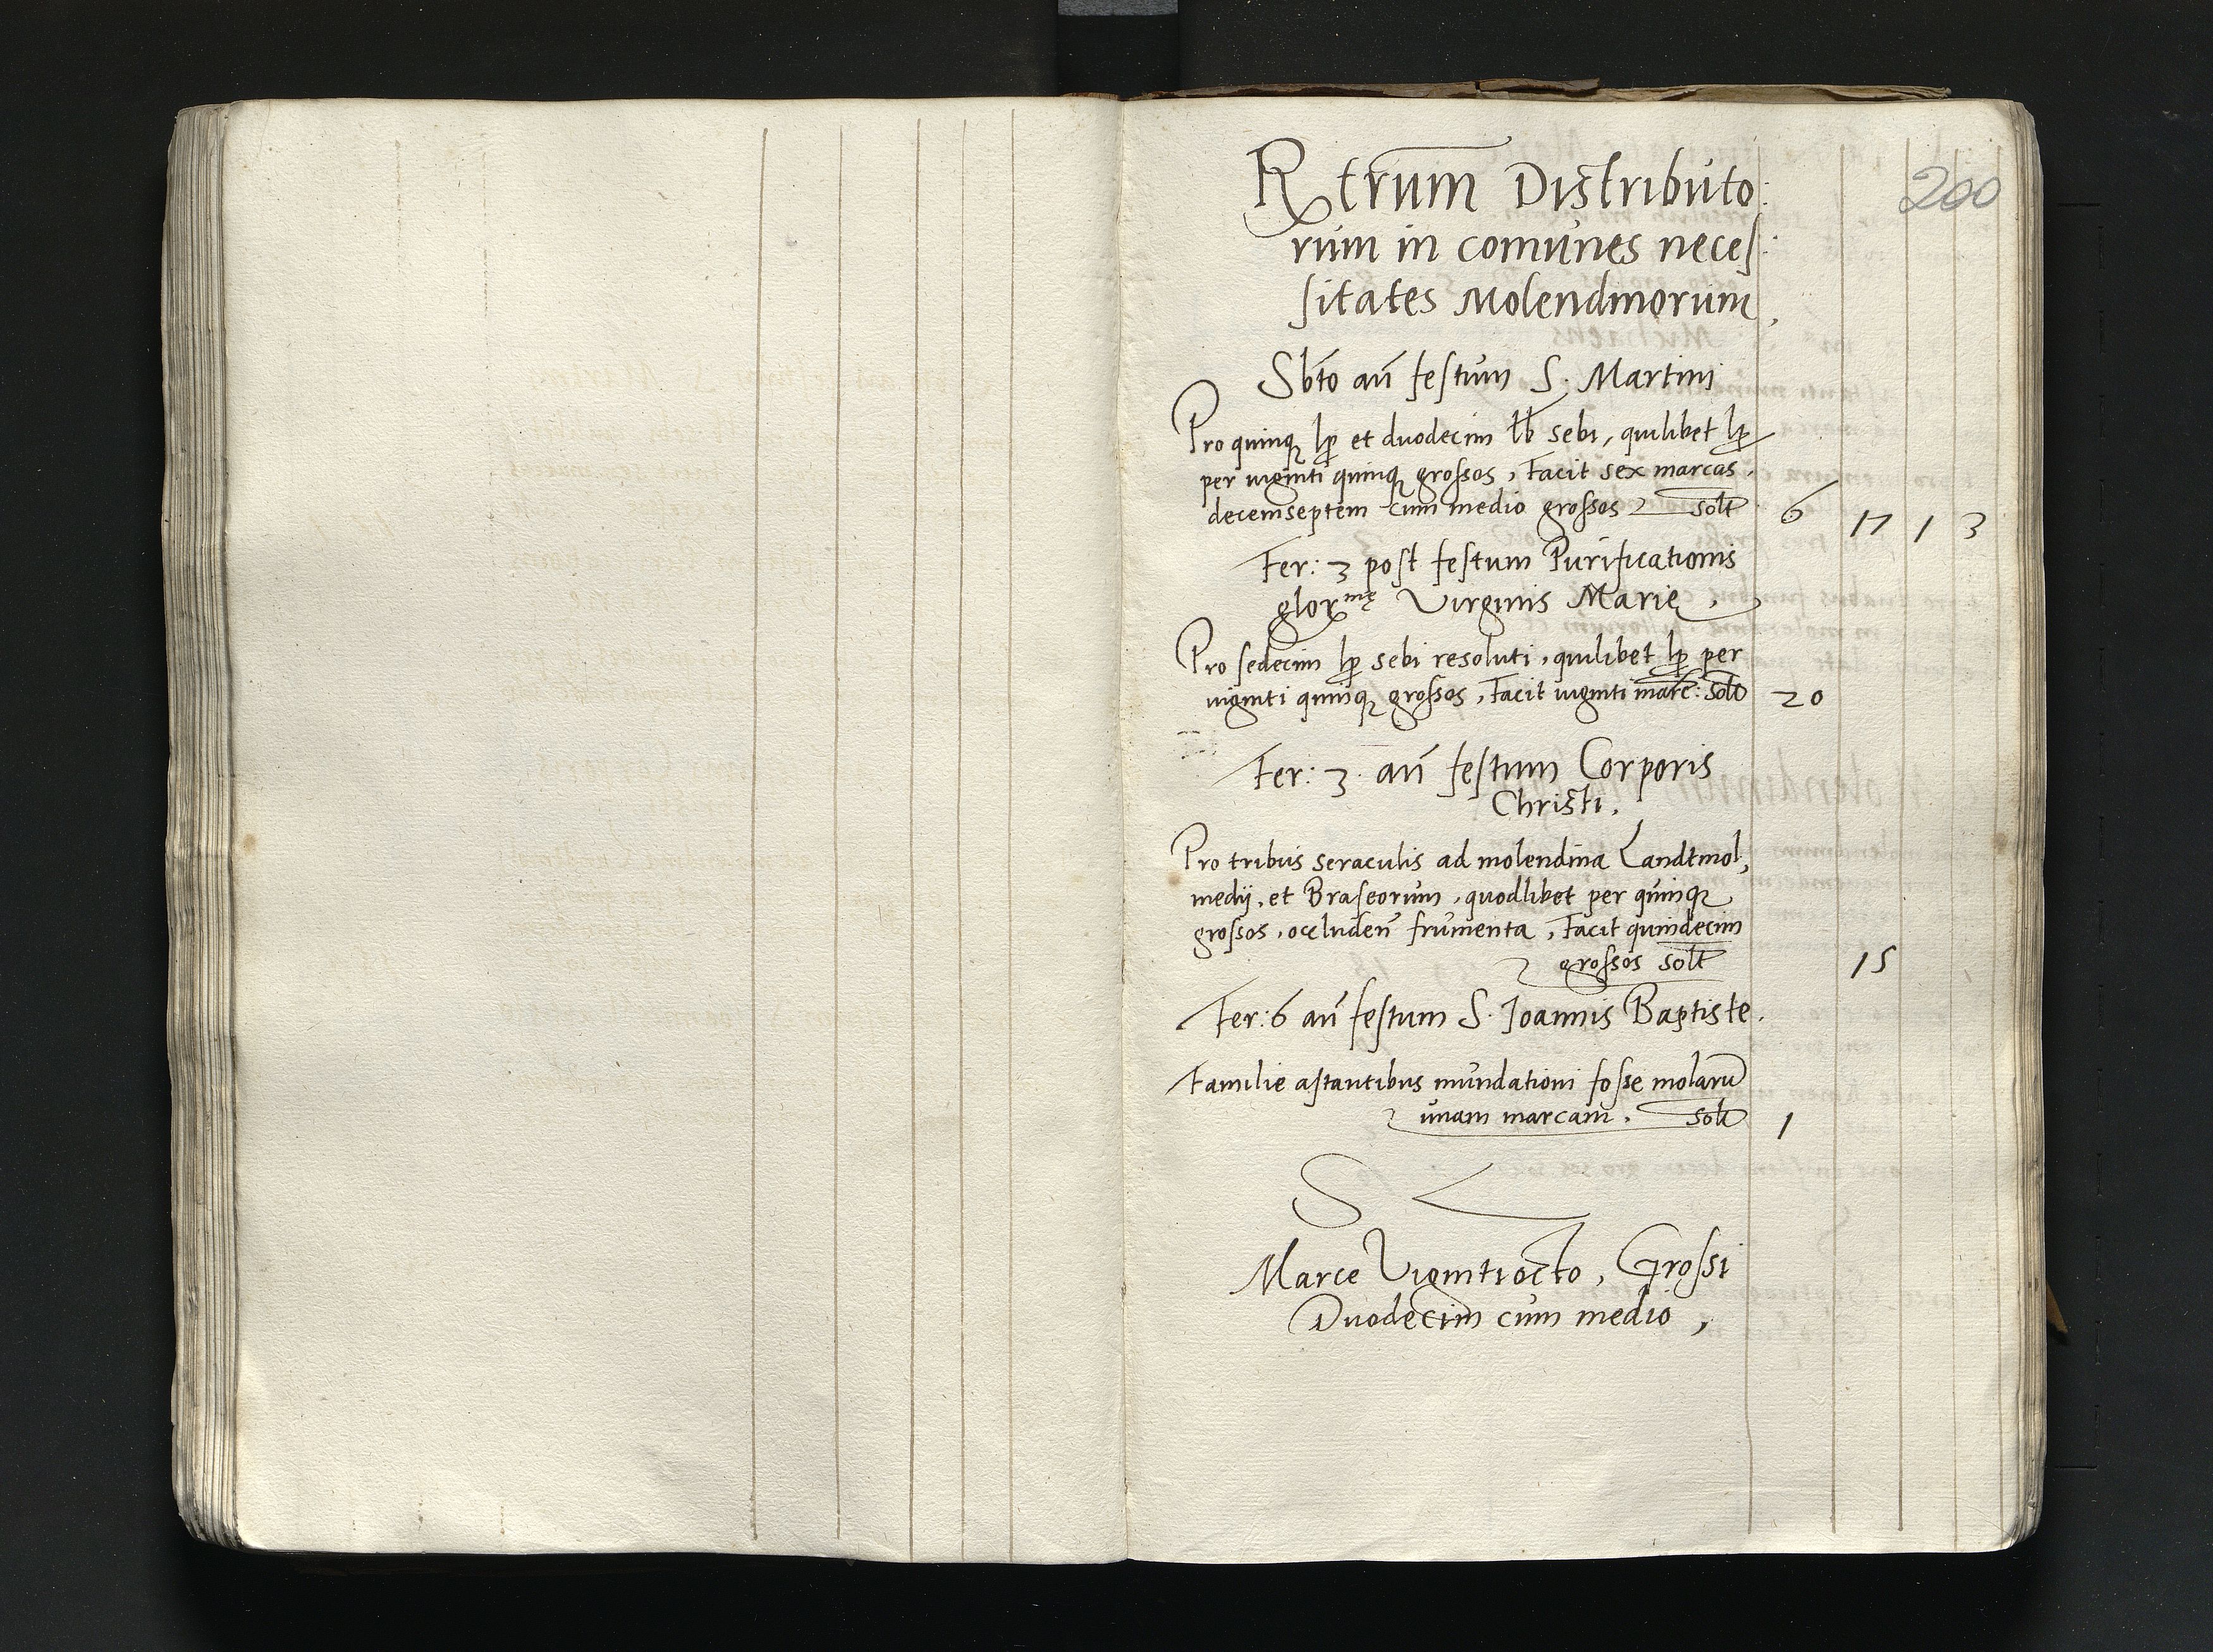 200
Rtrum Distributo:
rum in comunes neces:
sitates Molendinorum,
Sbto añ festum S. Martini
Pro quinq lp et duodecim lb sebi, quilibet lp
per viginti quinq grossos, Facit sex marcas.
decemseptem cum medio grossos solt 6 17 1 3
Fer: 3 post festum Purificationis
glormę Virginis Marię.
Pro sedecim lp sebi resoluti, quilibet lp per
viginti quinq grossos, Facit viginti marc: solt 20
Fer: 3. añ festum Corporis
Christi.
Pro tribus seraculis ad molendina Landtmol,
medij, et Braseorum, quodlibet per quinq
grossos, occludeñ frumenta, Facit quindecim
grossos solt 15
Fer: 6 añ festum S. Joannis Baptiste.
Familie astantibus mundationi fosse molarū
unam marcam. solt 1
S
Marce Vigintiocto, Grossi
Duodecim cum medio,